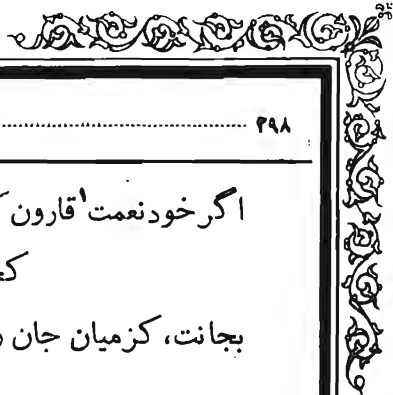 ۴۹۸
اگر خودنعمت۱ قارون
بجانت، کزمیان جان